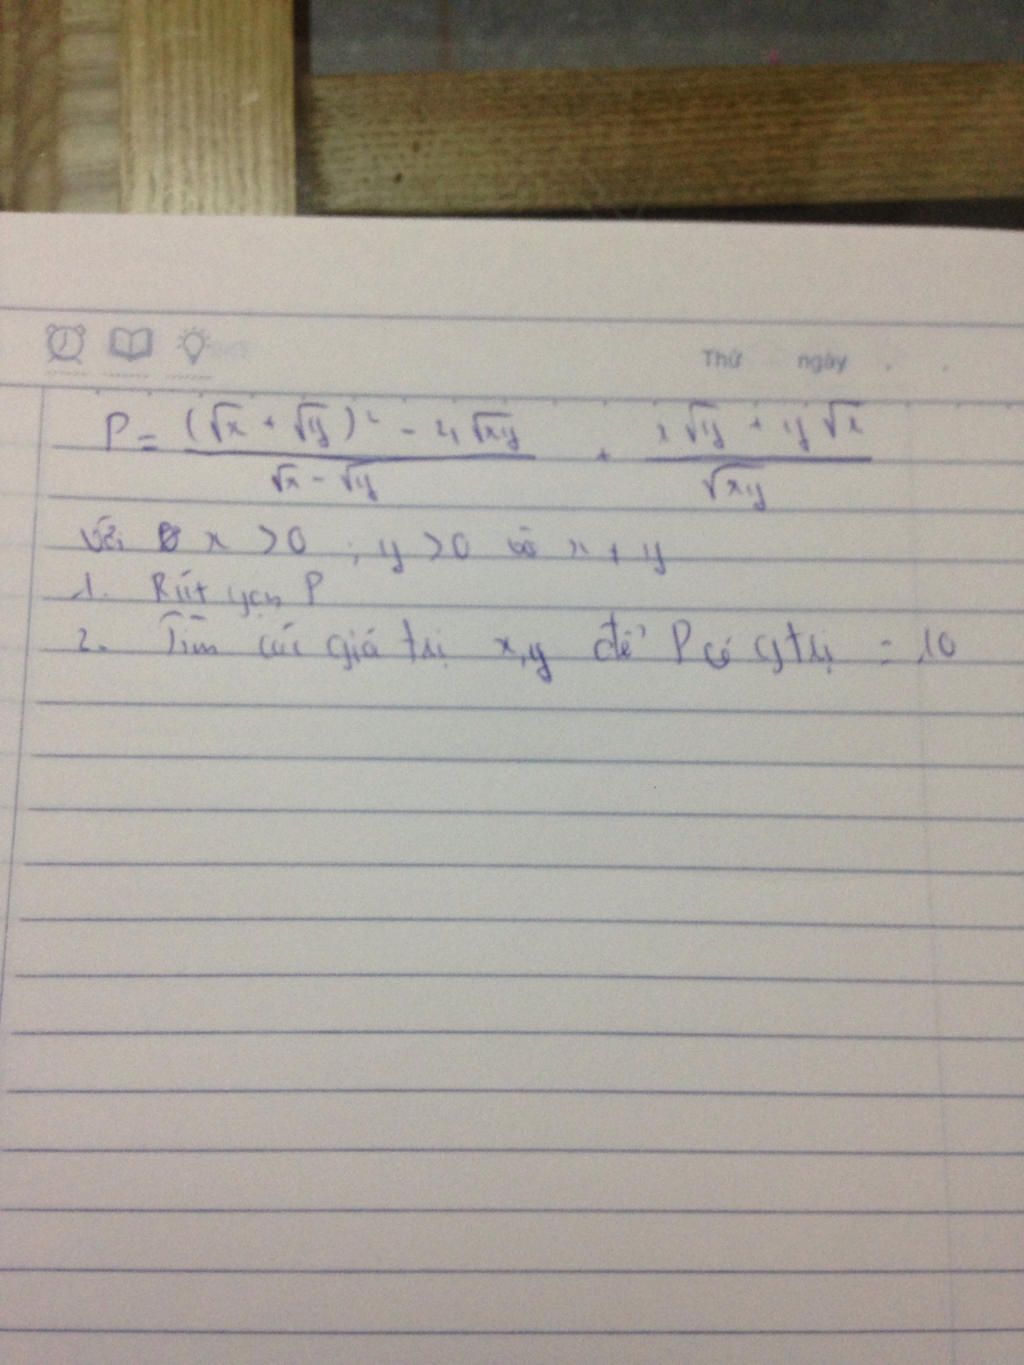 Thứ ngày
P = \frac{(\sqrt{x} + \sqrt{y})^2 - 4\sqrt{xy}}{\sqrt{x} - \sqrt{y}} + \frac{x\sqrt{y} + y\sqrt{x}}{\sqrt{xy}}
Với x > 0 ; y > 0 và x ≠ y
1. Rút gọn P
2. Tìm các giá trị x, y để P có gtrị = 10